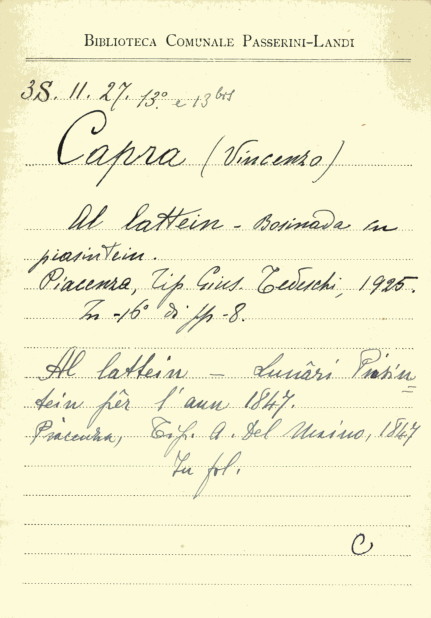 BIBLIOTECA COMUNALE PASSERINI-LANDI
3S. 11. 27. 13º e 13 bis
Capra (Vincenzo)
Al lattein - Bosinada in
piasintein.
Piacenza, Tip. Gius. Tedeschi, 1925.
In -16º di pp. -8.
Al lattein - Lunâri Piasin=
tein pêr l'ann 1847.
Piacenza, Tip. A. Del Maino, 1847
In fol.
C